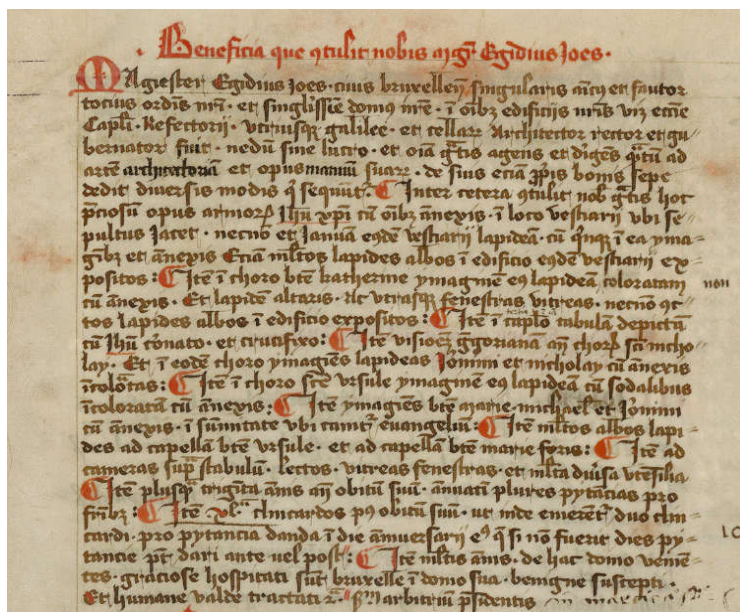 Beneficia que ꝯtulit nobis mgr̄ Egidius Joes.
MAgister Egidius Joes. ciuis bruxellen̄. singularis amic̄ et fautor
tocius ordīs nr̄i. et singlīssīe domꝰ nr̄e. ī oībꝫ edificijs nr̄is viꝫ ecc̄ie
Capl̄i. Refectorij. vtriusqꝫ galilee. et cellarꝝ Architector rector et gu
bernator fuit. nedū sine lucro. et oīa gr̄tis agens et dir̄gens qͣtū ad
artē architectoriā et opus manuū suarꝝ. de suis eciā ꝓprijs bonis sepe
dedit diuersis modis q̄ sequūt᷑. Inter cetera ꝯtulit nob̄ gr̄tis hoc
p̄ciosū opus armorꝝ Jhū xp̄i cū oībꝫ ānexis. ī loco vestiarij vbi se-
pultus iacet. necnō et Januā eꝰdē vestiarij lapideā. cū qͥnqꝫ ī ea yma-
gībꝫ et ānexis Eciā ml̄tos lapides albos ī edificio eꝰdē vestiarij ex-
positos: Itē ī choro btē katherine ymaginē eꝰ lapideā coloratam non
cū ānexis. Et lapidē altaris. Ac vtrasqꝫ fenestras vitreas. necnō ml̄-
tos lapides albos ī edificio expositos: Itē ī capl̄o tabulā depictā
cū Jhū coronato. et crucifixo: Itē visioēꝫ ggorianā an̄ chorꝝ sc̄i nicho
lay. Et ī eodē choro ymagīes lapideas Johānni et nicholay cū ānexis
īcolr̄atas: Itē ī choro sc̄te vrsule ymaginē eꝰ lapideā cū sodalibus
īcoloratam cū ānexis: Itē ymagīes btē marie. michael̄. et Johānni
cū ānexis. ī sūmitate vbi cantat᷑ euangeliū: Itē ml̄tos albos lapi
des ad capellā btē vrsule. et ad capellā btē marie foris: Itē ad
cameras supͣ stabulū. lectos. vitreas fenestras. et ml̄ta diūsa vtēsilia
Itē plusqͣ trigīta ānis an̄ obitū suū. annuatī plures pytācias pro
fr̄ibꝫ: Itē xlᵃ clīncardos pꝰ obitū suū. vt inde emerēt᷑ duo clin
cardi. pro pytancia danda ī die anniuersarij eꝰ qͥ si nō fuerit dies py-
tancie pn̄t dari ante vel post: Itē ml̄tis ānis. de hac domo venien-
tes. graciose hospitati sūt bruxelle ī domo sua. benigne suscepti.
Et humane valde tractati
arbitriū presidentis